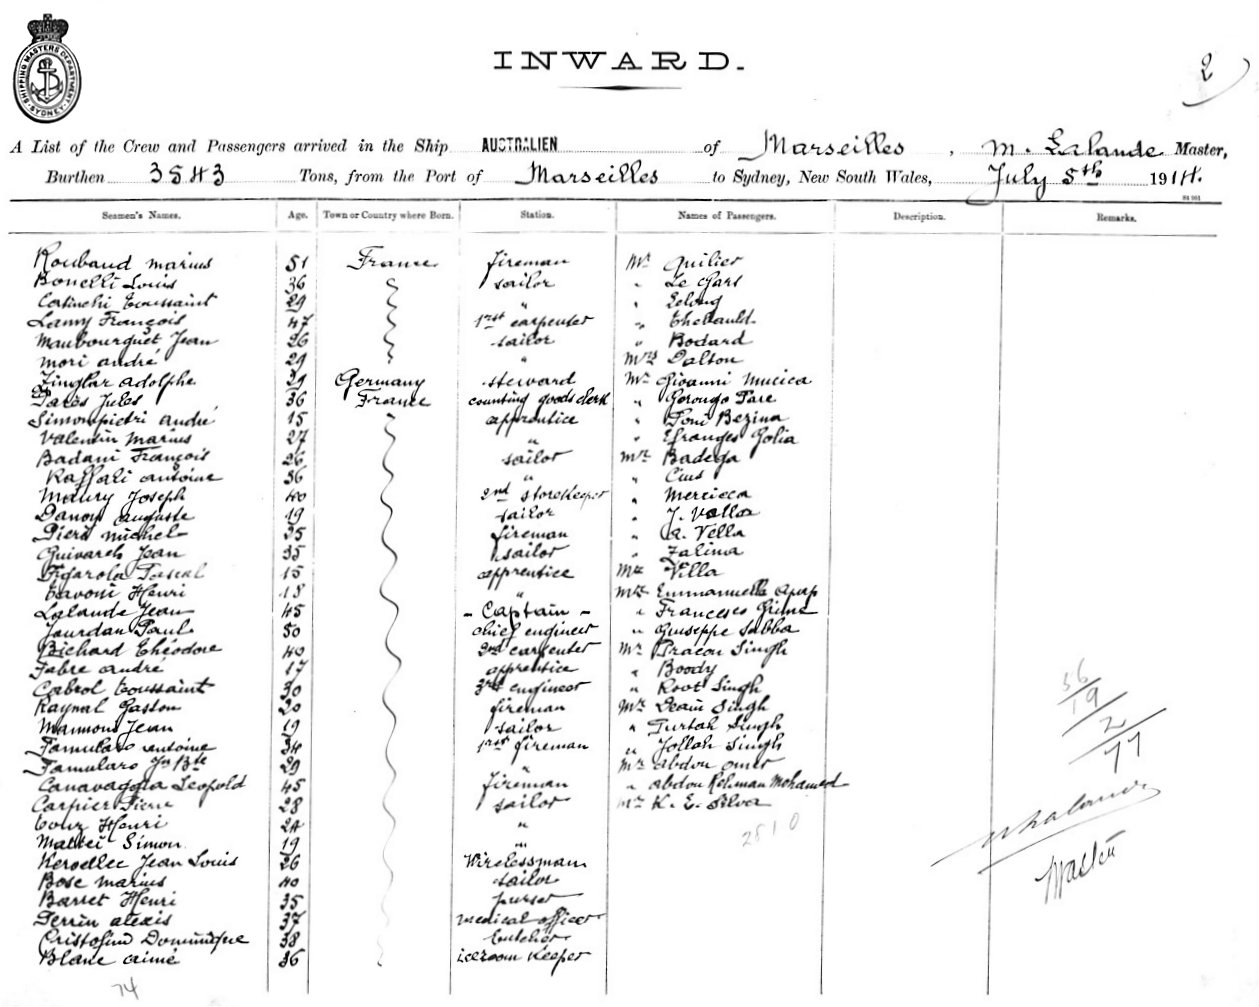 SHIPPING MASTERS DEPARTMENT SYDNEY
INWARD.
2
A List of the Crew and Passengers arrived in the Ship AUSTRALIEN of Marseilles, M. Lalande Master,
Burthen 3543 Tons, from the Port of Marseilles to Sydney, New South Wales, July 5th 1914.
Seamen's Names. Age. Town or Country where Born. Station. Names of Passengers. Description. Remarks.
Roubaud Marius 51 France fireman Mr Quilier
Bonelli Louis 36 sailor " Le Gars
Toussaint 29 " "
Lamy François 47 1rst carpenter " Thebauld
Maubourguet Jean 26 sailor " Bodard
Mori André 29 " Mrs Dalton
Zinglar Adolphe 29 Germany steward Mr Gioanni Mucica
Jules 36 France counting goods clerk "
Simonpietri André 15 apprentice " Toni Bezina
Valentin Marius 27 " " Efranges Golia
Badani François 26 sailor Mr Badega
Raffali Antoine 36 " " Cius
Maury Joseph 40 2nd storekeeper " Mercieca
Danoy Auguste 19 sailor " J. Vallor
Pieri Michel 35 fireman " A. Vella
Quivarch Jean 35 sailor " Zalina
Figarola Pascal 15 apprentice Mr Villa
Tavoni Henri 18 " Mrs Emmanuella Apap
Lalande Jean 45 - Captain - " Frances Grima
Jourdan Paul 50 chief engineer " Giuseppe Sabba
Bichard Théodore 40 2nd carpenter Mr Pracon Singh
Fabre André 17 apprentice " Boody
Cabrol Toussaint 30 3rd engineer " Root Singh
Raynal Gaston 20 fireman Mr Deain Singh
Mannoni Jean 19 sailor " Gurtah Singh
Famularo Antoine 34 1rst fireman " Jollah Singh
Famularo Jn Bte 29 " Mr Abdou Omer
Canavaggia Léopold 45 fireman " Abdou Rehman Mohamed
Carpier Pierre 28 sailor Mr K. E. Silva
Henri 24 "
2810
Mattei Simon 19 "
Kervellec Jean Louis 26 Wirelessman
Bosc Marius 40 sailor
Barret Henri 35 purser
Perrin Alexis 37 medical officer
Cristofini Dominique 38 butcher
Blanc Aimé 36 iceroom keeper
74
36
19
2
77
Lalande
Master